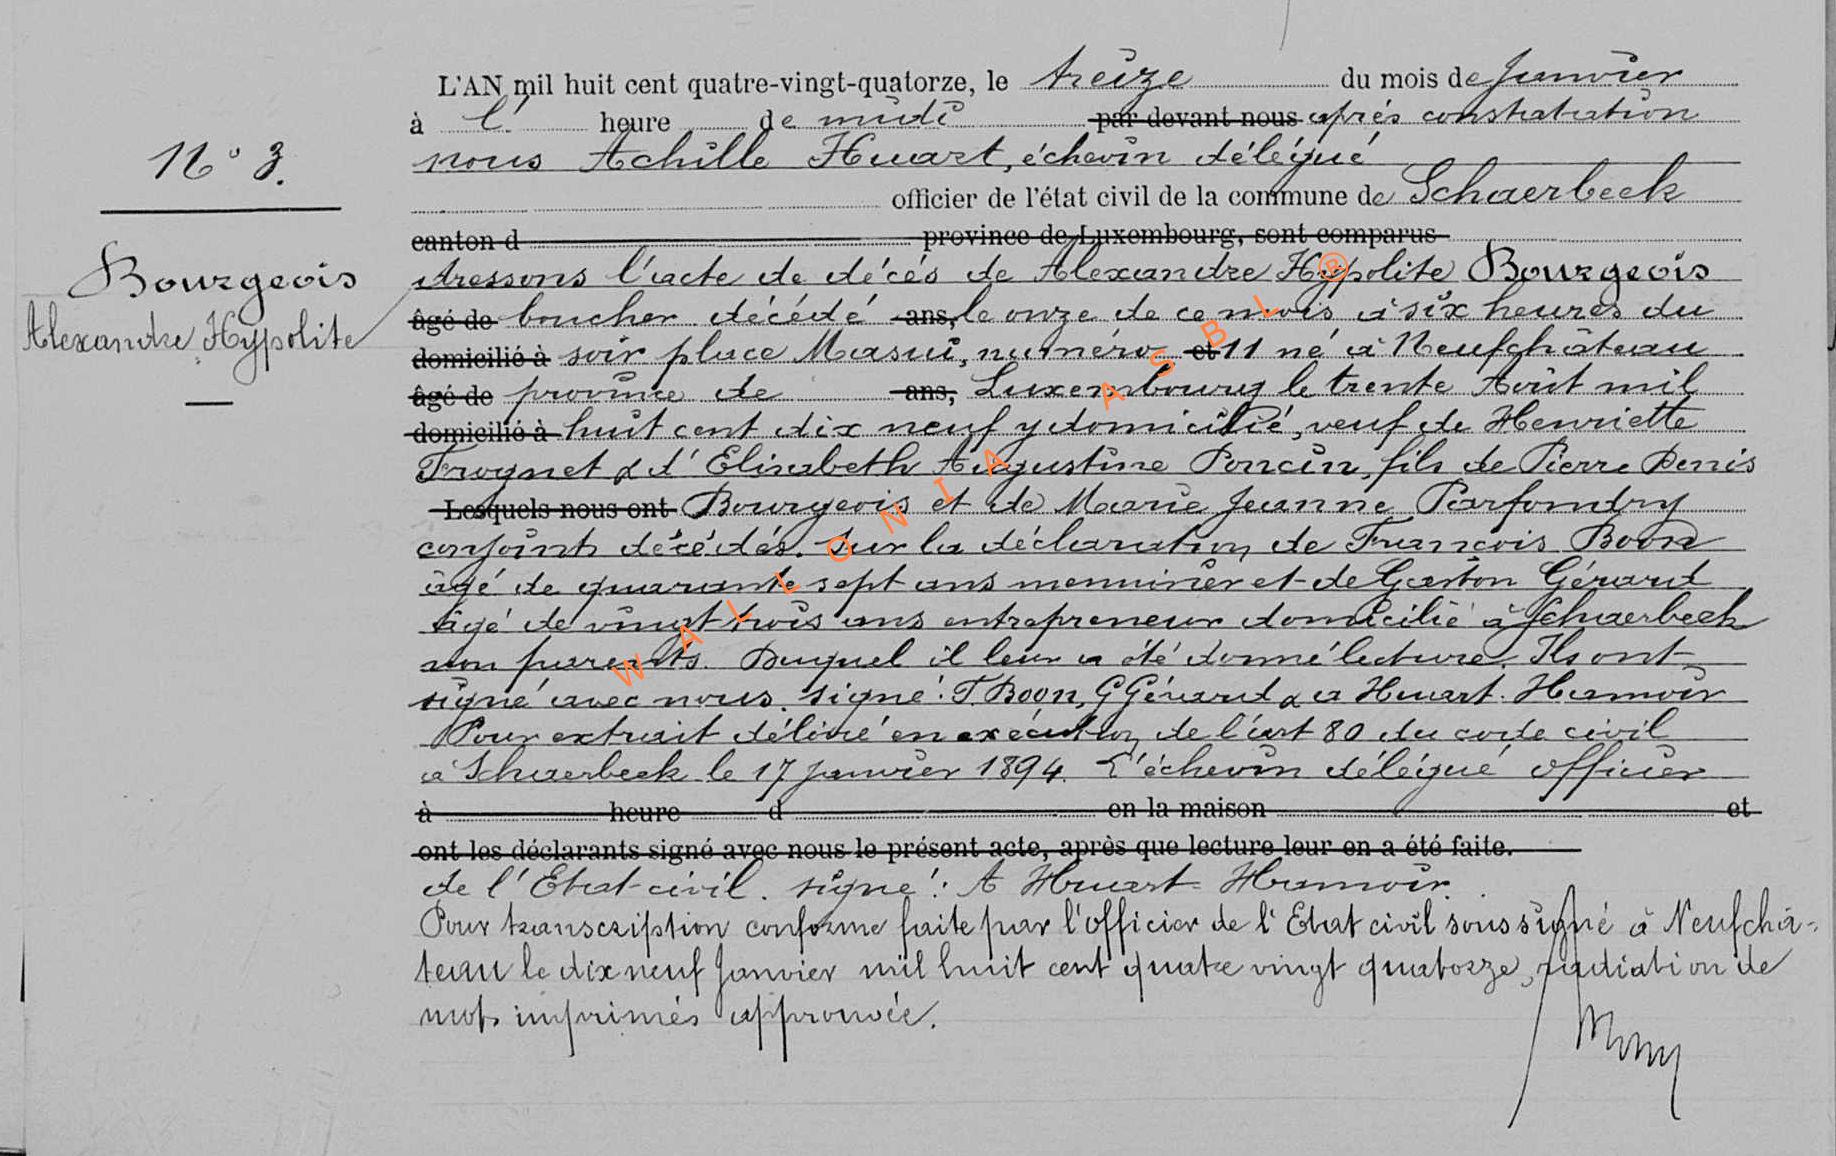 N° 3.
Bourgeois
Alexandre Hypolite
L'AN mil huit cent quatre-vingt-quatorze, le treize du mois de Janvier
à l' heure de midi par devant nous après constatation
nous Achille Huart, échevin délégué
officier de l'état civil de la commune de Schaerbeek
canton d province de Luxembourg, sont comparus
dressons l'acte de décés de Alexandre Hypolite Bourgeois
âgé de boucher décédé ans, le onze de ce mois à six heures du
domicilié à soir place Masui, numéro et 11 né à Neufchâteau
âgé de province de ans, Luxembourg le trente Août mil
domicilié à huit cent dix neuf y domicilié, veuf de Henriette
Frognet & d'Elisabeth Augustine Poncin, fils de Pierre Denis
Lesquels nous ont Bourgeois et de Marie Jeanne Parfondry
conjoints décédés. Sur la déclaration de François Boon
âgé de quarante sept ans menuisier et de Gaston Gérard
âgé de vingt trois ans entrepreneur domicilié à Schaerbeek
non parents. Duquel il leur a été donné lecture. Ils ont
signé avec nous. signé: F. Boon, G Gérard & a Huart. Hamoir
Pour extrait délivré en exécution de l'art 80 du code civil
à Schaerbeek le 17 Janvier 1894. L'échevin délégué officier
à heure d en la maison et
ont les déclarants signé avec nous le présent acte, après que lecture leur en a été faite.
de l'Etat-civil. signé: A Huart Hamoir.
Pour transcription conforme faite par l'officier de l'Etat civil soussigné à Neufchâ-
teau le dix neuf Janvier mil huit cent quatre vingt quatorze, radiation de
mots imprimés approuvée.
WALLONIA ASBL ®